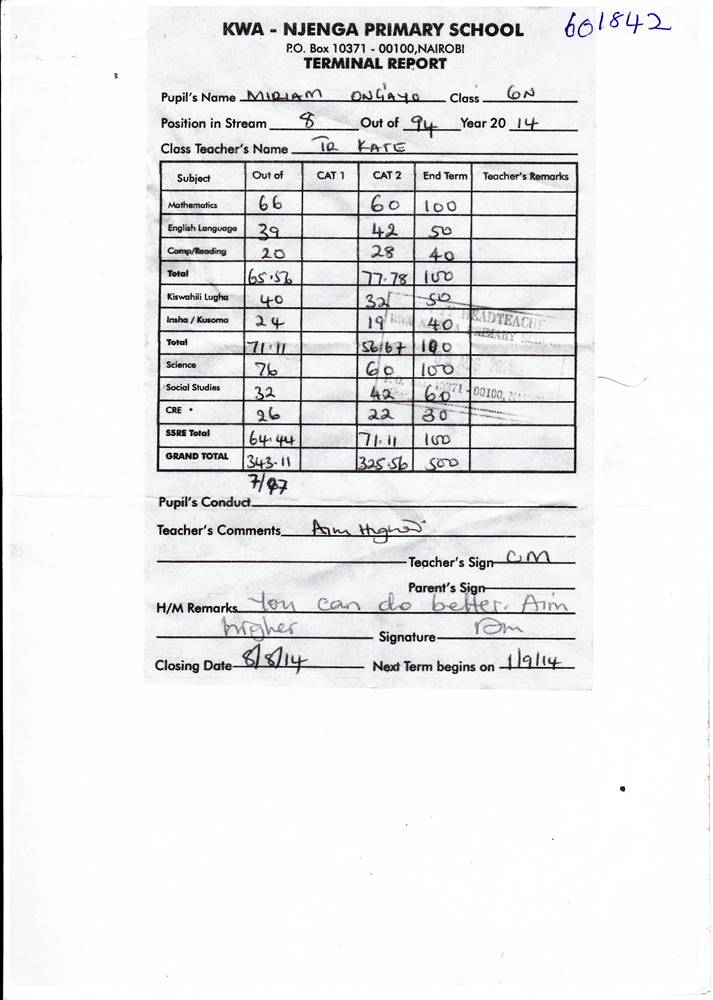 601842
KWA - NJENGA PRIMARY SCHOOL
P.O. Box 10371 - 00100,NAIROBI
TERMINAL REPORT
Pupil's Name MIRIAM ONGAYO Class 6N
Position in Stream 8 Out of 94 Year 20 14
Class Teacher's Name TR KATE
Subject Out of CAT 1 CAT 2 End Term Teacher's Remarks
Mathematics 66 60 100
English Language 39 42 50
Comp/Reading 20 28 40
Total 65.56 77.78 100
Kiswahili Lugha 40 32 50
Insha / Kusoma 24 19 40
HEADTEACHE
PRIMARY
Total 71.11 56.67 100
Science 76 60 100
Social Studies 32 42 60
10371 - 00100,
CRE 26 22 30
SSRE Total 64.44 71.11 100
GRAND TOTAL 343.11 325.56 500
7/97
Pupil's Conduct
Teacher's Comments Aim Higher
Teacher's Sign CM
Parent's Sign
H/M Remarks You can do better. Aim
higher Signature
Closing Date 8/8/14 Next Term begins on 1/9/14